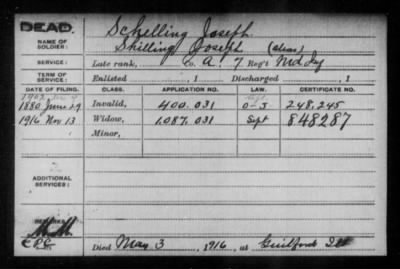 DEAD.
NAME OF SOLDIER:
Schelling Joseph
Shilling Joseph (alias)
SERVICE: Late rank, Co. A, 7 Reg't Md Inf
TERM OF SERVICE: Enlisted , 1 Discharged , 1
DATE OF FILING. CLASS. APPLICATION NO. LAW. CERTIFICATE NO.
1880 June 29 Invalid, 400.031 G-J 248.245
1916 Nov 13 Widow, 1.087.031 Sept 848287
Minor,
ADDITIONAL SERVICES:
REMARKS:
Died May 3, 1916, at Guilford